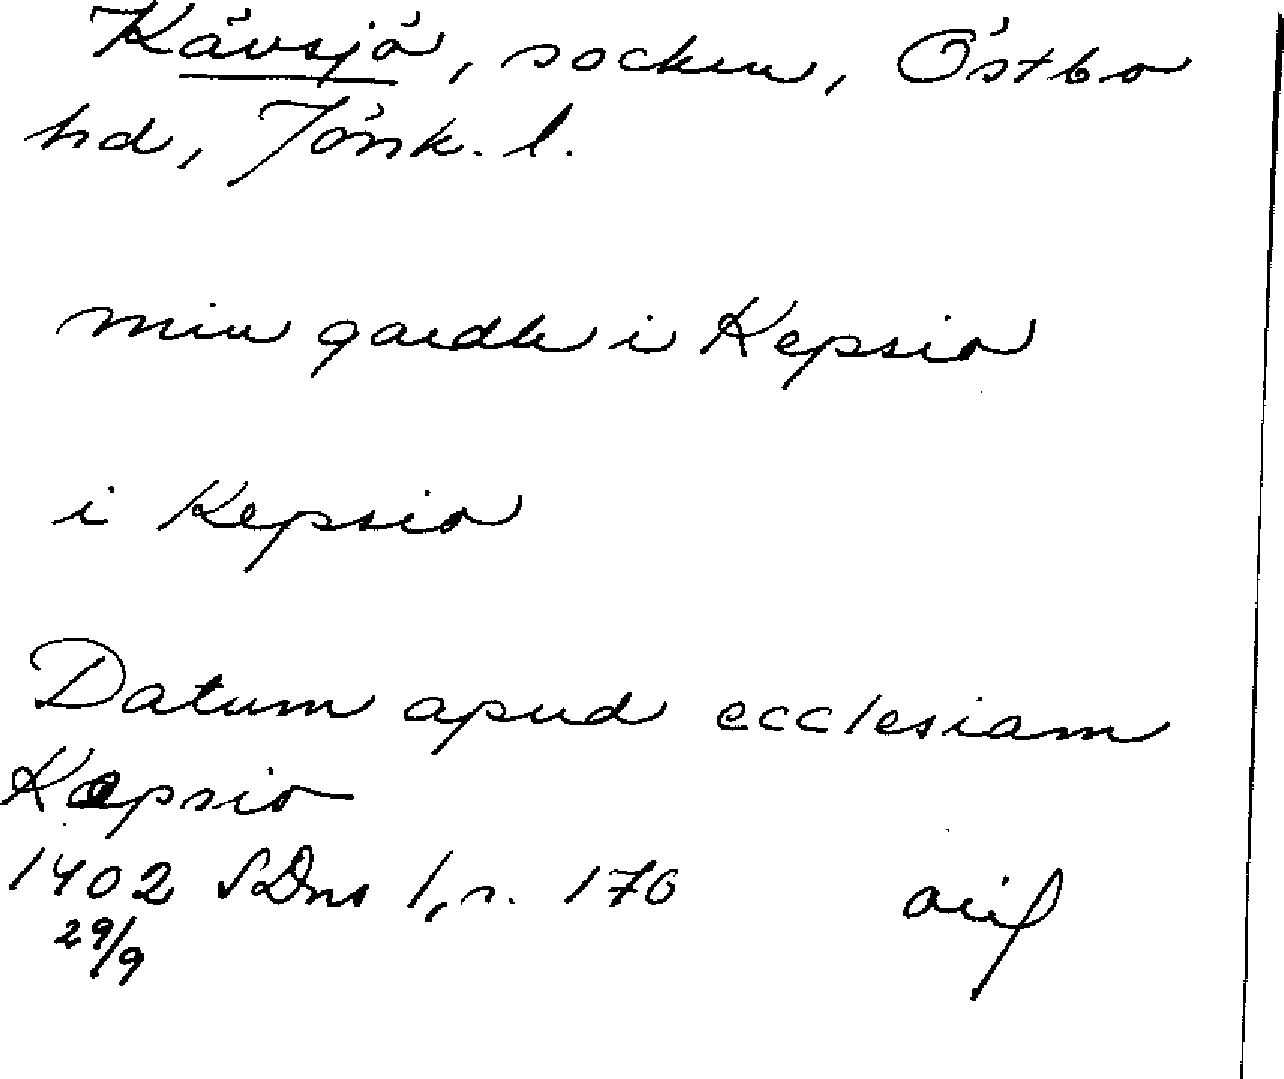 Kävsjö, socken, Östbo
hd, Jönk. l.
min gardh i Kepsio
i Kepsio
Datum apud ecclesiam
Kæpsio
1402 SDns 1, s. 170
29/9